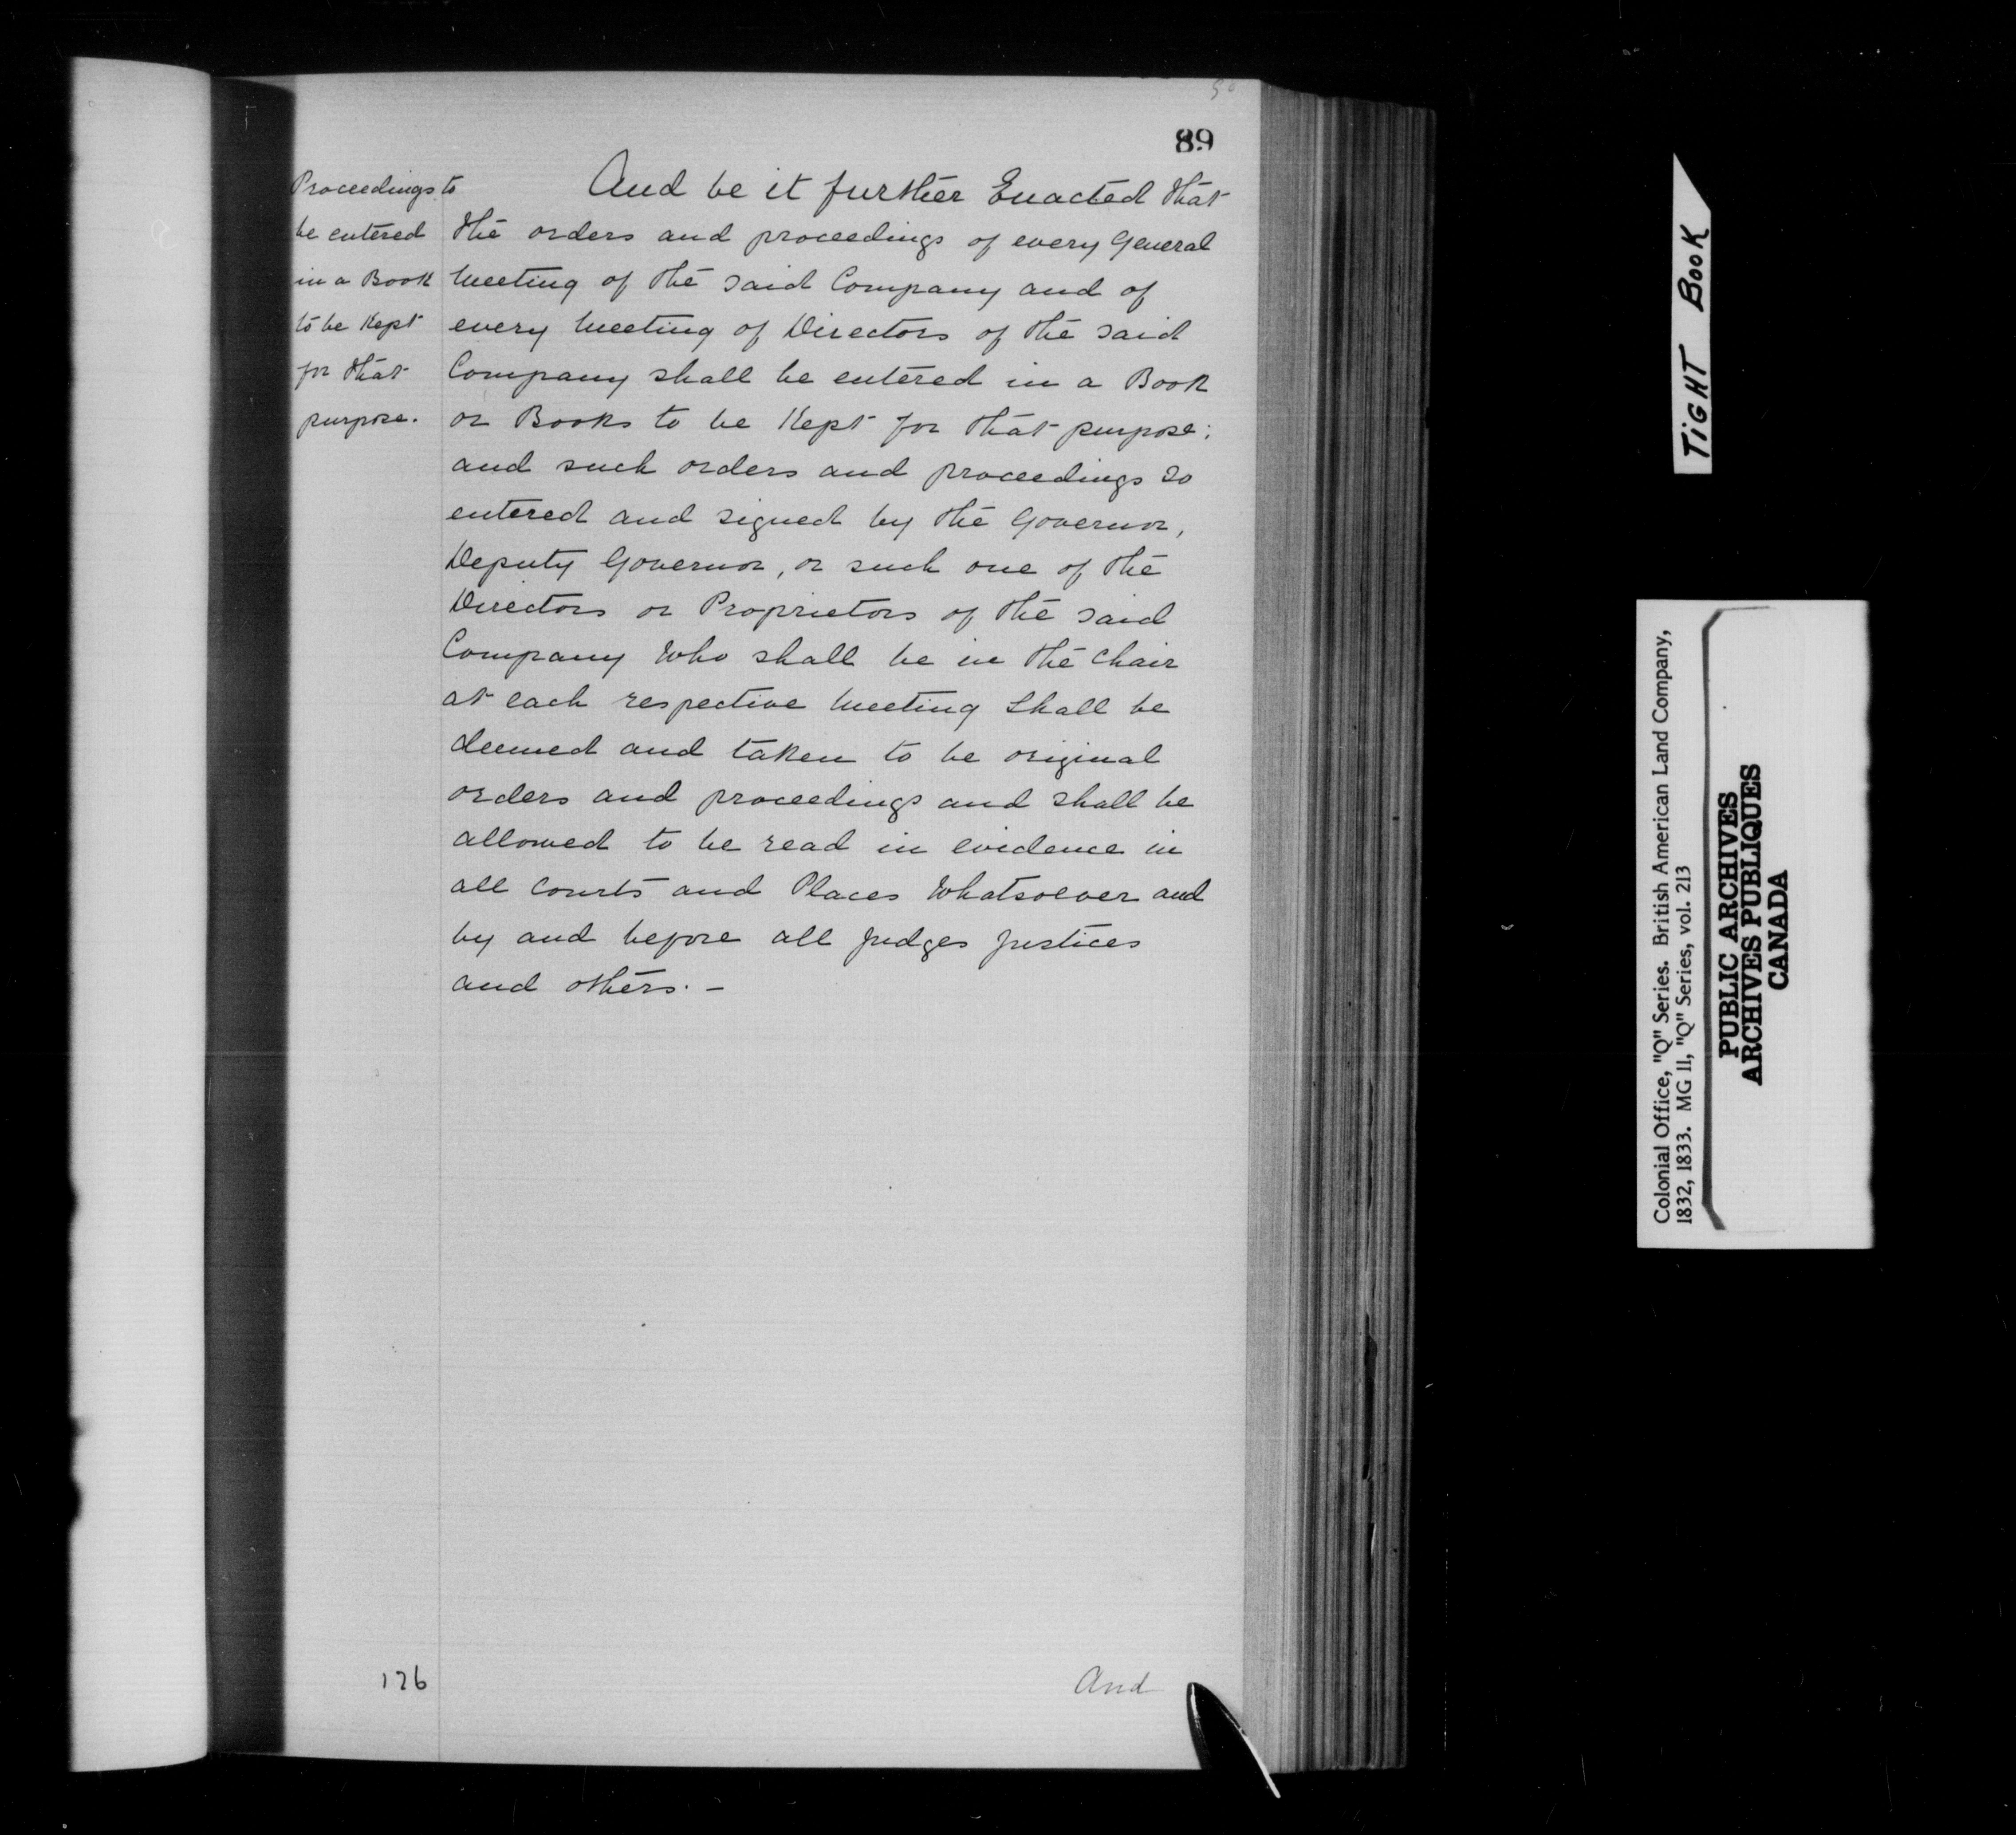 89
Proceedings to
be entered
in a Book
to be Kept
for that
purpose.
And be it further Enacted that
the orders and proceedings of every General
Meeting of the said Company and of
every Meeting of Directors of the said
Company shall be entered in a Book
or Books to be Kept for that purpose;
and such orders and proceedings so
entered and signed by the Governor,
Deputy Governor, or such one of the
Directors or Proprietors of the said
Company Who shall be in the Chair
at each respective Meeting Shall be
deemed and taken to be original
orders and proceedings and shall be
allowed to be read in evidence in
all Courts and Places Whatsoever and
by and before all Judges Justices
and others. –
126
And
TIGHT BOOK
Colonial Office, "Q" Series. British American Land Company,
1832, 1833. MG 11, "Q" Series, vol. 213
PUBLIC ARCHIVES
ARCHIVES PUBLIQUES
CANADA